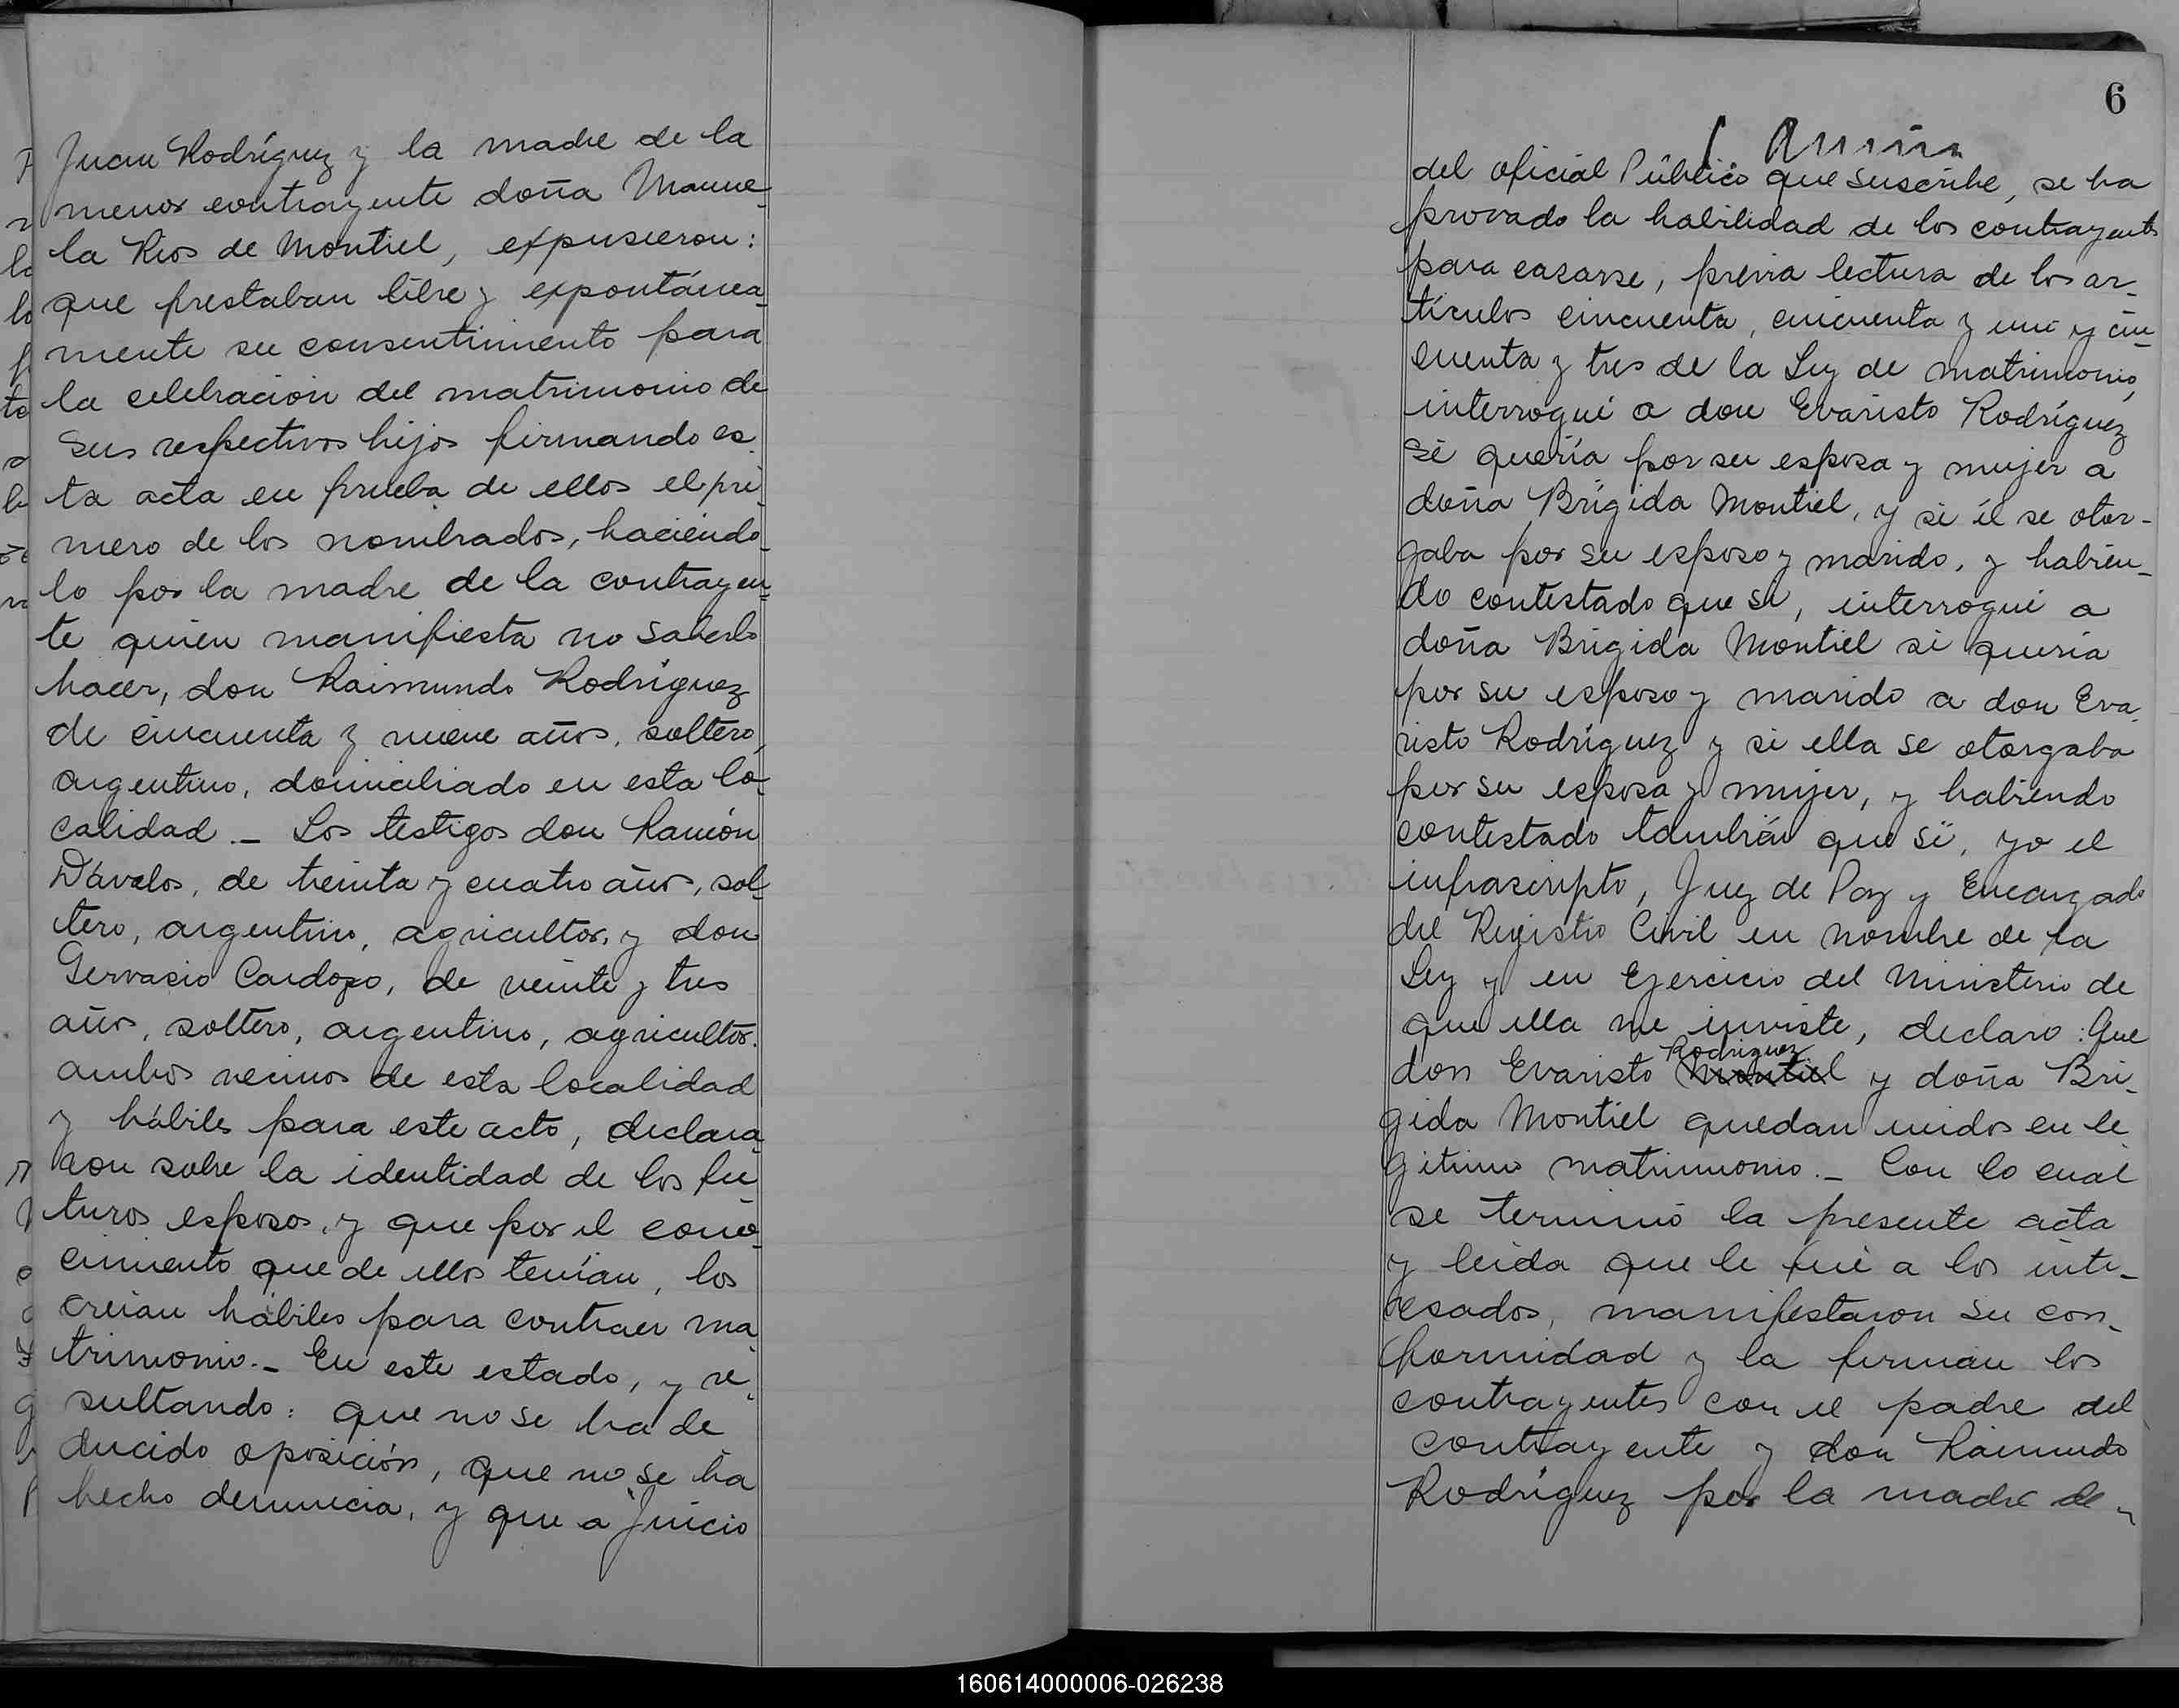 Juan Rodríguez y la madre de la
menor contrayente doña Manue-
la Rios de Montiel, expusieron:
que prestaban libre y expontánea-
mente su consentimiento para
la celebración del matrimonio de
sus respectivos hijos firmando es-
ta acta en prueba de ellos el pri-
mero de los nombrados, haciéndo-
lo por la madre de la contrayen-
te quien manifiesta no saberlo
hacer, don Raimundo Rodríguez
de cincuenta y nueve años, soltero,
argentino, domiciliado en esta lo-
calidad._ Los testigos don Ramón
Dávalos, de treinta y cuatro años, sol-
tero, argentino, agricultor, y don
Gervasio Cardozo, de veinte y tres
años, soltero, argentino, agricultor.
ambos vecinos de esta localidad
y hábiles para este acto, declara-
ron sobre la identidad de los fu-
turos esposos, y que por el cono-
cimiento que de ellos tenían, los
creían hábiles para contraer ma-
trimonio._ En este estado, y re-
sultando: que no se ha de
ducido oposición, que no se ha
hecho denuncia, y que a Juicio
6
del oficial Público que suscribe, se ha
provado la habilidad de los contrayentes
para casarse, previa lectura de los ar-
tículos cincuenta, cincuenta y uno y cin-
cuenta y tres de la Ley de matrimonio,
interrogué a don Evaristo Rodríguez
si quería por su esposa y mujer a
doña Brígida Montiel, y si él se otor-
gaba por su esposo y marido, y habien-
do contestado que si, interrogué a
doña Brígida Montiel si quería
por su esposo y marido a don Eva-
risto Rodríguez y si ella se otorgaba
por su esposa y mujer, y habiendo
contestado también que sí, yo el
infrascripto, Juez de Paz y Encargado
del Registro Civil en nombre de la
Ley y en Ejercicio del Ministerio de
que ella me inviste, declaro: Que
Rodriguez
don Evaristo Montiel y doña Bri-
gida Montiel quedan unidos en le
gitimo matrimonio._ Con lo cual
se terminó la presente acta
y leida que le fué a los inte-
resados, manifestaron su con-
formidad y la firman los
contrayentes con el padre del
contrayente y don Raimundo
Rodríguez por la madre de
160614000006-026238